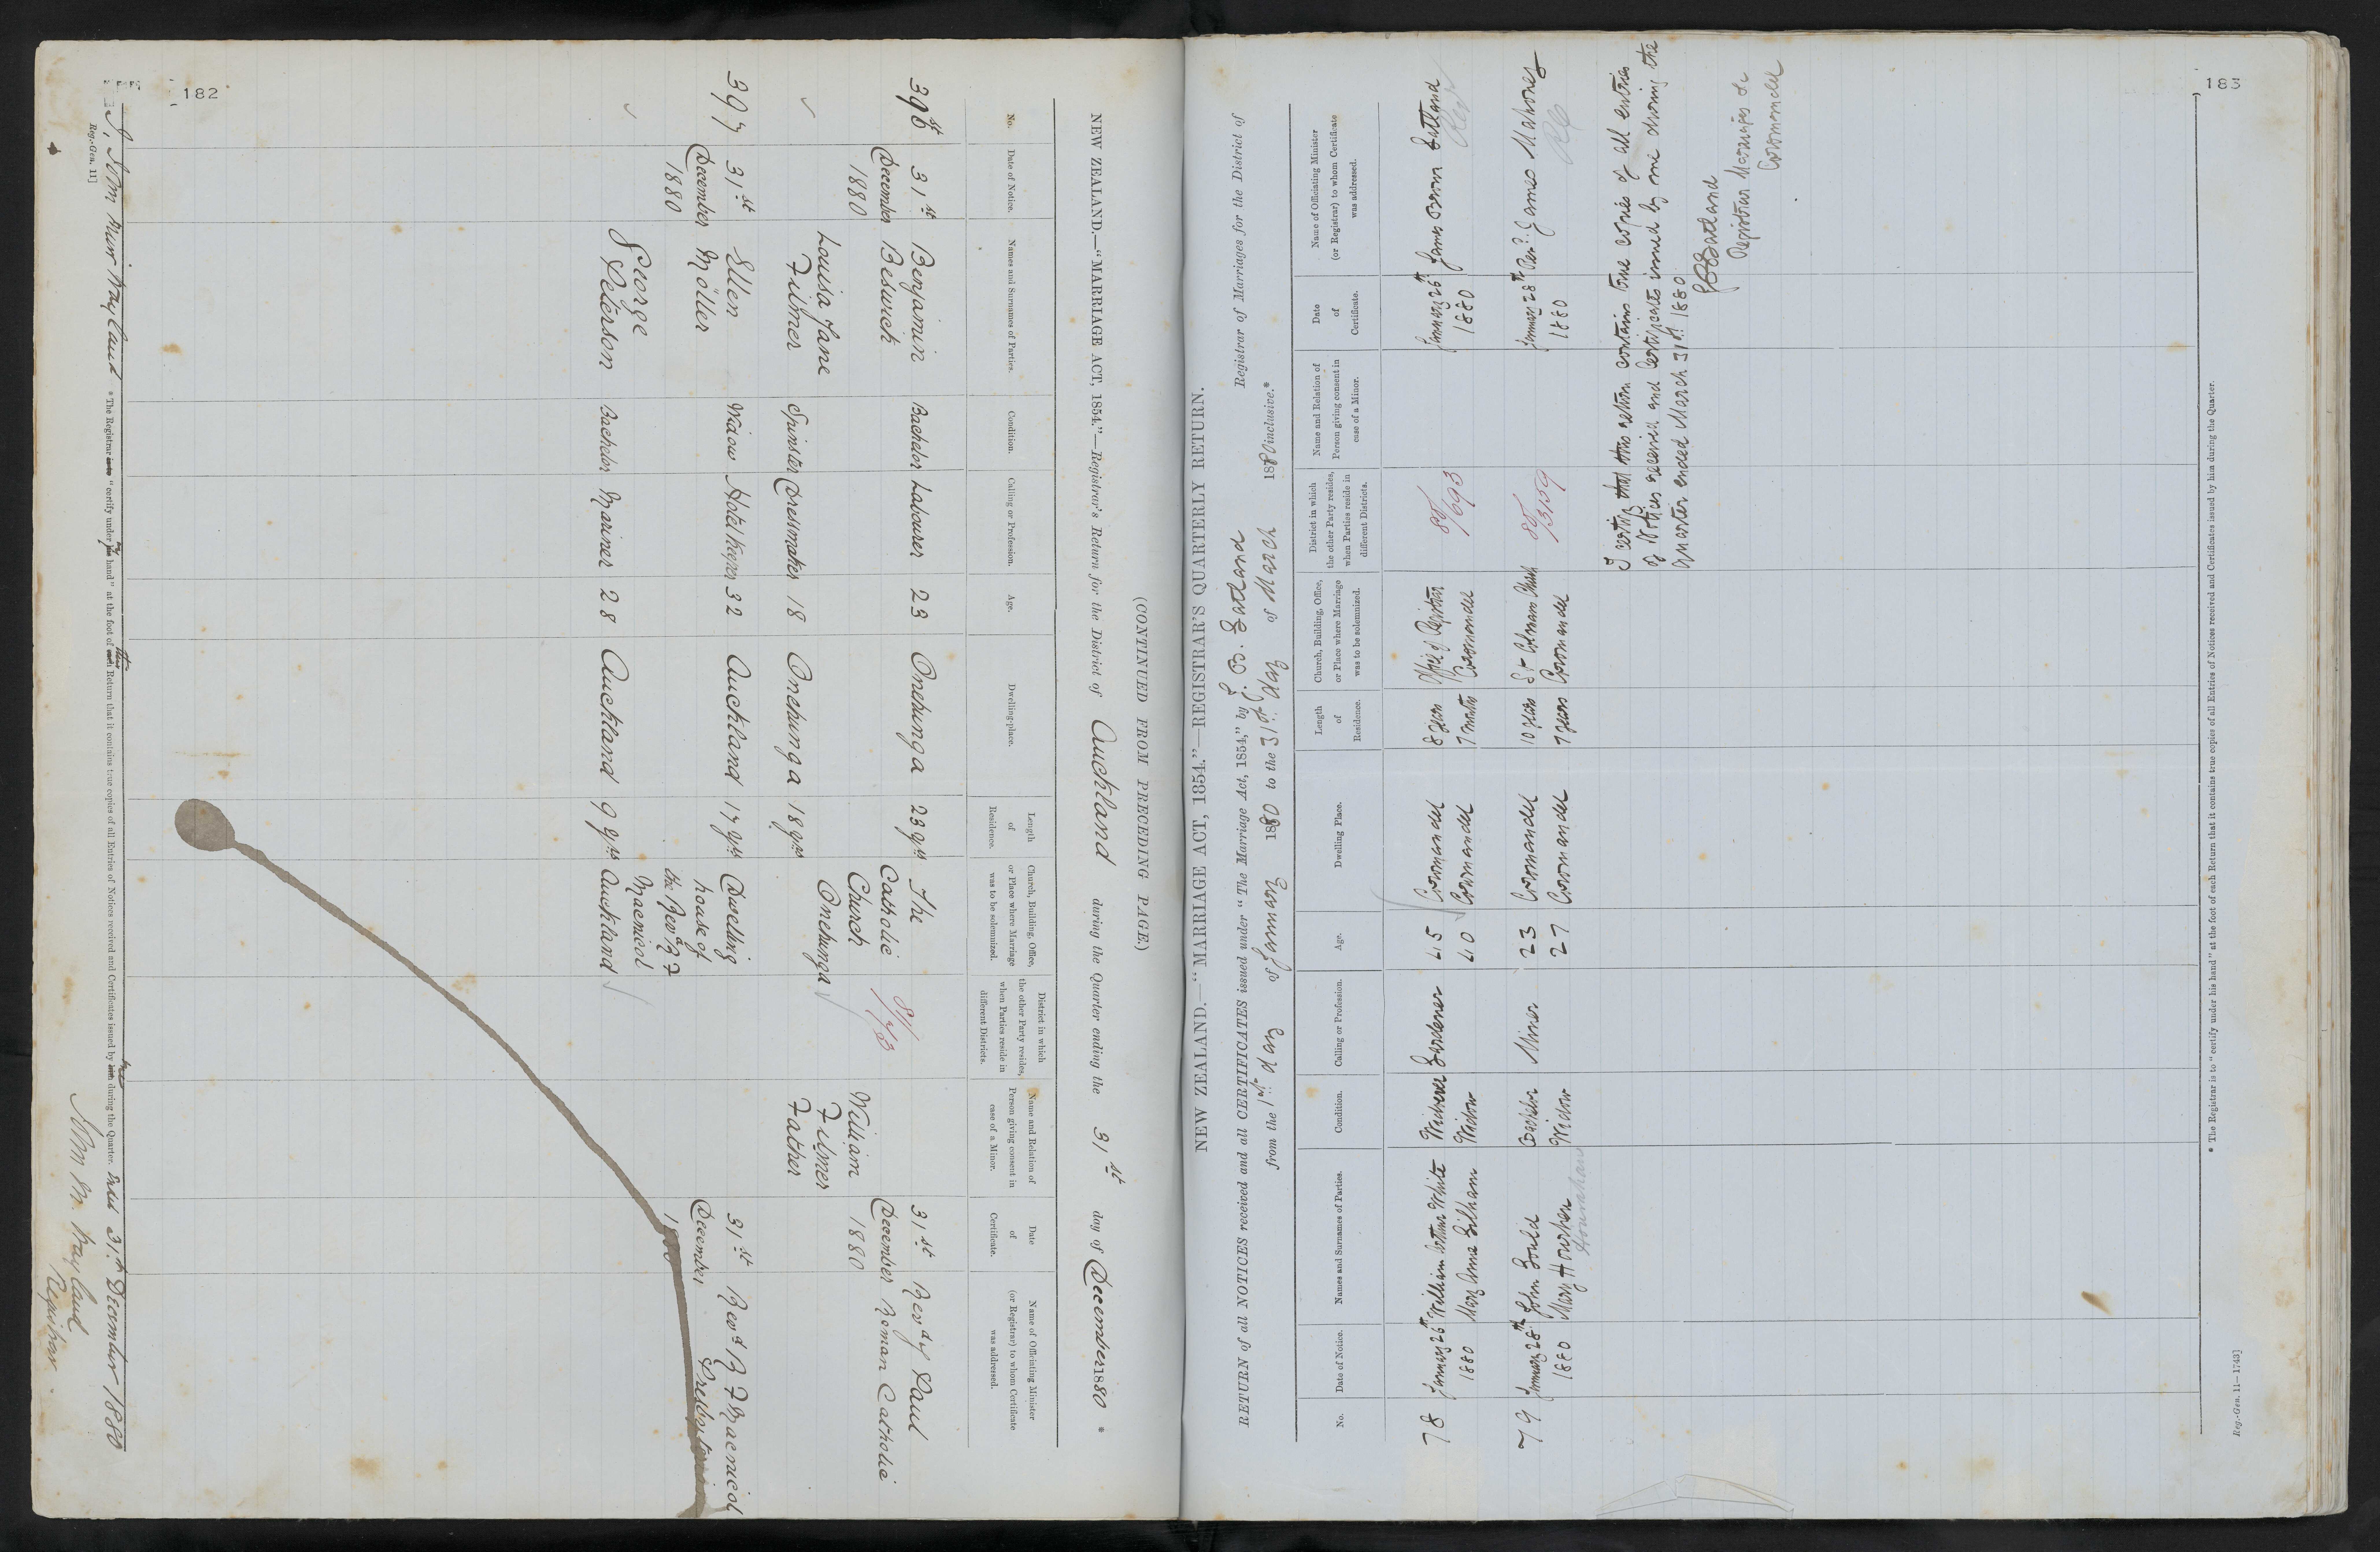 182
(CONTINUED FROM PRECEDING PAGE.)
NEW ZEALAND.—"MARRIAGE ACT, 1854."—Registrar's Return for the District of Auckland during the Quarter ending the 31st day of December 1880 *
No. Date of Notice. Names and Surnames of Parties. Condition. Calling or Profession. Age. Dwelling-place. Length of Residence. Church, Building, Office, or Place where Marriage was to be solemnized. District in which the other Party resides, when Parties reside in different Districts. Name and Relation of Person giving consent in case of a Minor. Date of Certificate. Name of Officiating Minister (or Registrar) to whom Certificate was addressed.
396 31st Benjamin Bachelor Labourer 23 Onehunga 23 yrs The 31st Revd Paul
December Beswick Catholic 81/ December Roman Catholic
1880 Church William 1880
Louisa Jane Onehunga Filmer
Filmer Spinster Dressmaker 18 Onehunga 18 yrs Father
397 31st Ellen Widow Hotel Keeper 32 Auckland 17 yrs Dwelling 31st Revd R F Macnicol
December Möller house of December Presbyterian
1880 the Revd R F 1880
George Macnicol
Peterson Bachelor Mariner 28 Auckland 9 yrs Auckland
I, John Muir Wayland * The Registrar is to "certify under his my hand" at the foot of each this Return that it contains true copies of all Entries of Notices received and Certificates issued by him me during the Quarter. 31st December 1880
Reg.-Gen. 11]
John M. Wayland
Registrar
183
NEW ZEALAND.—"MARRIAGE ACT, 1854."—REGISTRAR'S QUARTERLY RETURN.
RETURN of all NOTICES received and all CERTIFICATES issued under "The Marriage Act, 1854," by J. B. Gatland Registrar of Marriages for the District of
from the 1st day of January 1880 to the 31st day of March 1880 inclusive.*
No. Date of Notice. Names and Surnames of Parties. Condition. Calling or Profession. Age. Dwelling Place. Length of Residence. Church, Building, Office, or Place where Marriage was to be solemnized. District in which the other Party resides, when Parties reside in different Districts. Name and Relation of Person giving consent in case of a Minor. Date of Certificate. Name of Officiating Minister (or Registrar) to whom Certificate was addressed.
78 January 26th William White Widower Gardener 45 Coromandel 8 years Office of Registrar January 26th James Bown Gatland
1880 Mary Anne Bilham Widow 40 Coromandel 7 months Coromandel 80/693 1880
79 January 28th John Gould Bachelor Miner 23 Coromandel 10 years St Colmans Church January 28th Revd James Mahoney
1880 Mary Widow 27 Coromandel 7 years Coromandel 80/3159 1880 RC
Hounahan
I certify that this return contains true copies of all entries
of Notices received and Certificates issued by me during the
Quarter ended March 31st 1880
JBGatland
Registrar Marriages &c
Coromandel
* The Registrar is to "certify under his hand" at the foot of each Return that it contains true copies of all Entries of Notices received and Certificates issued by him during the Quarter.
Reg.-Gen. 11—1743]